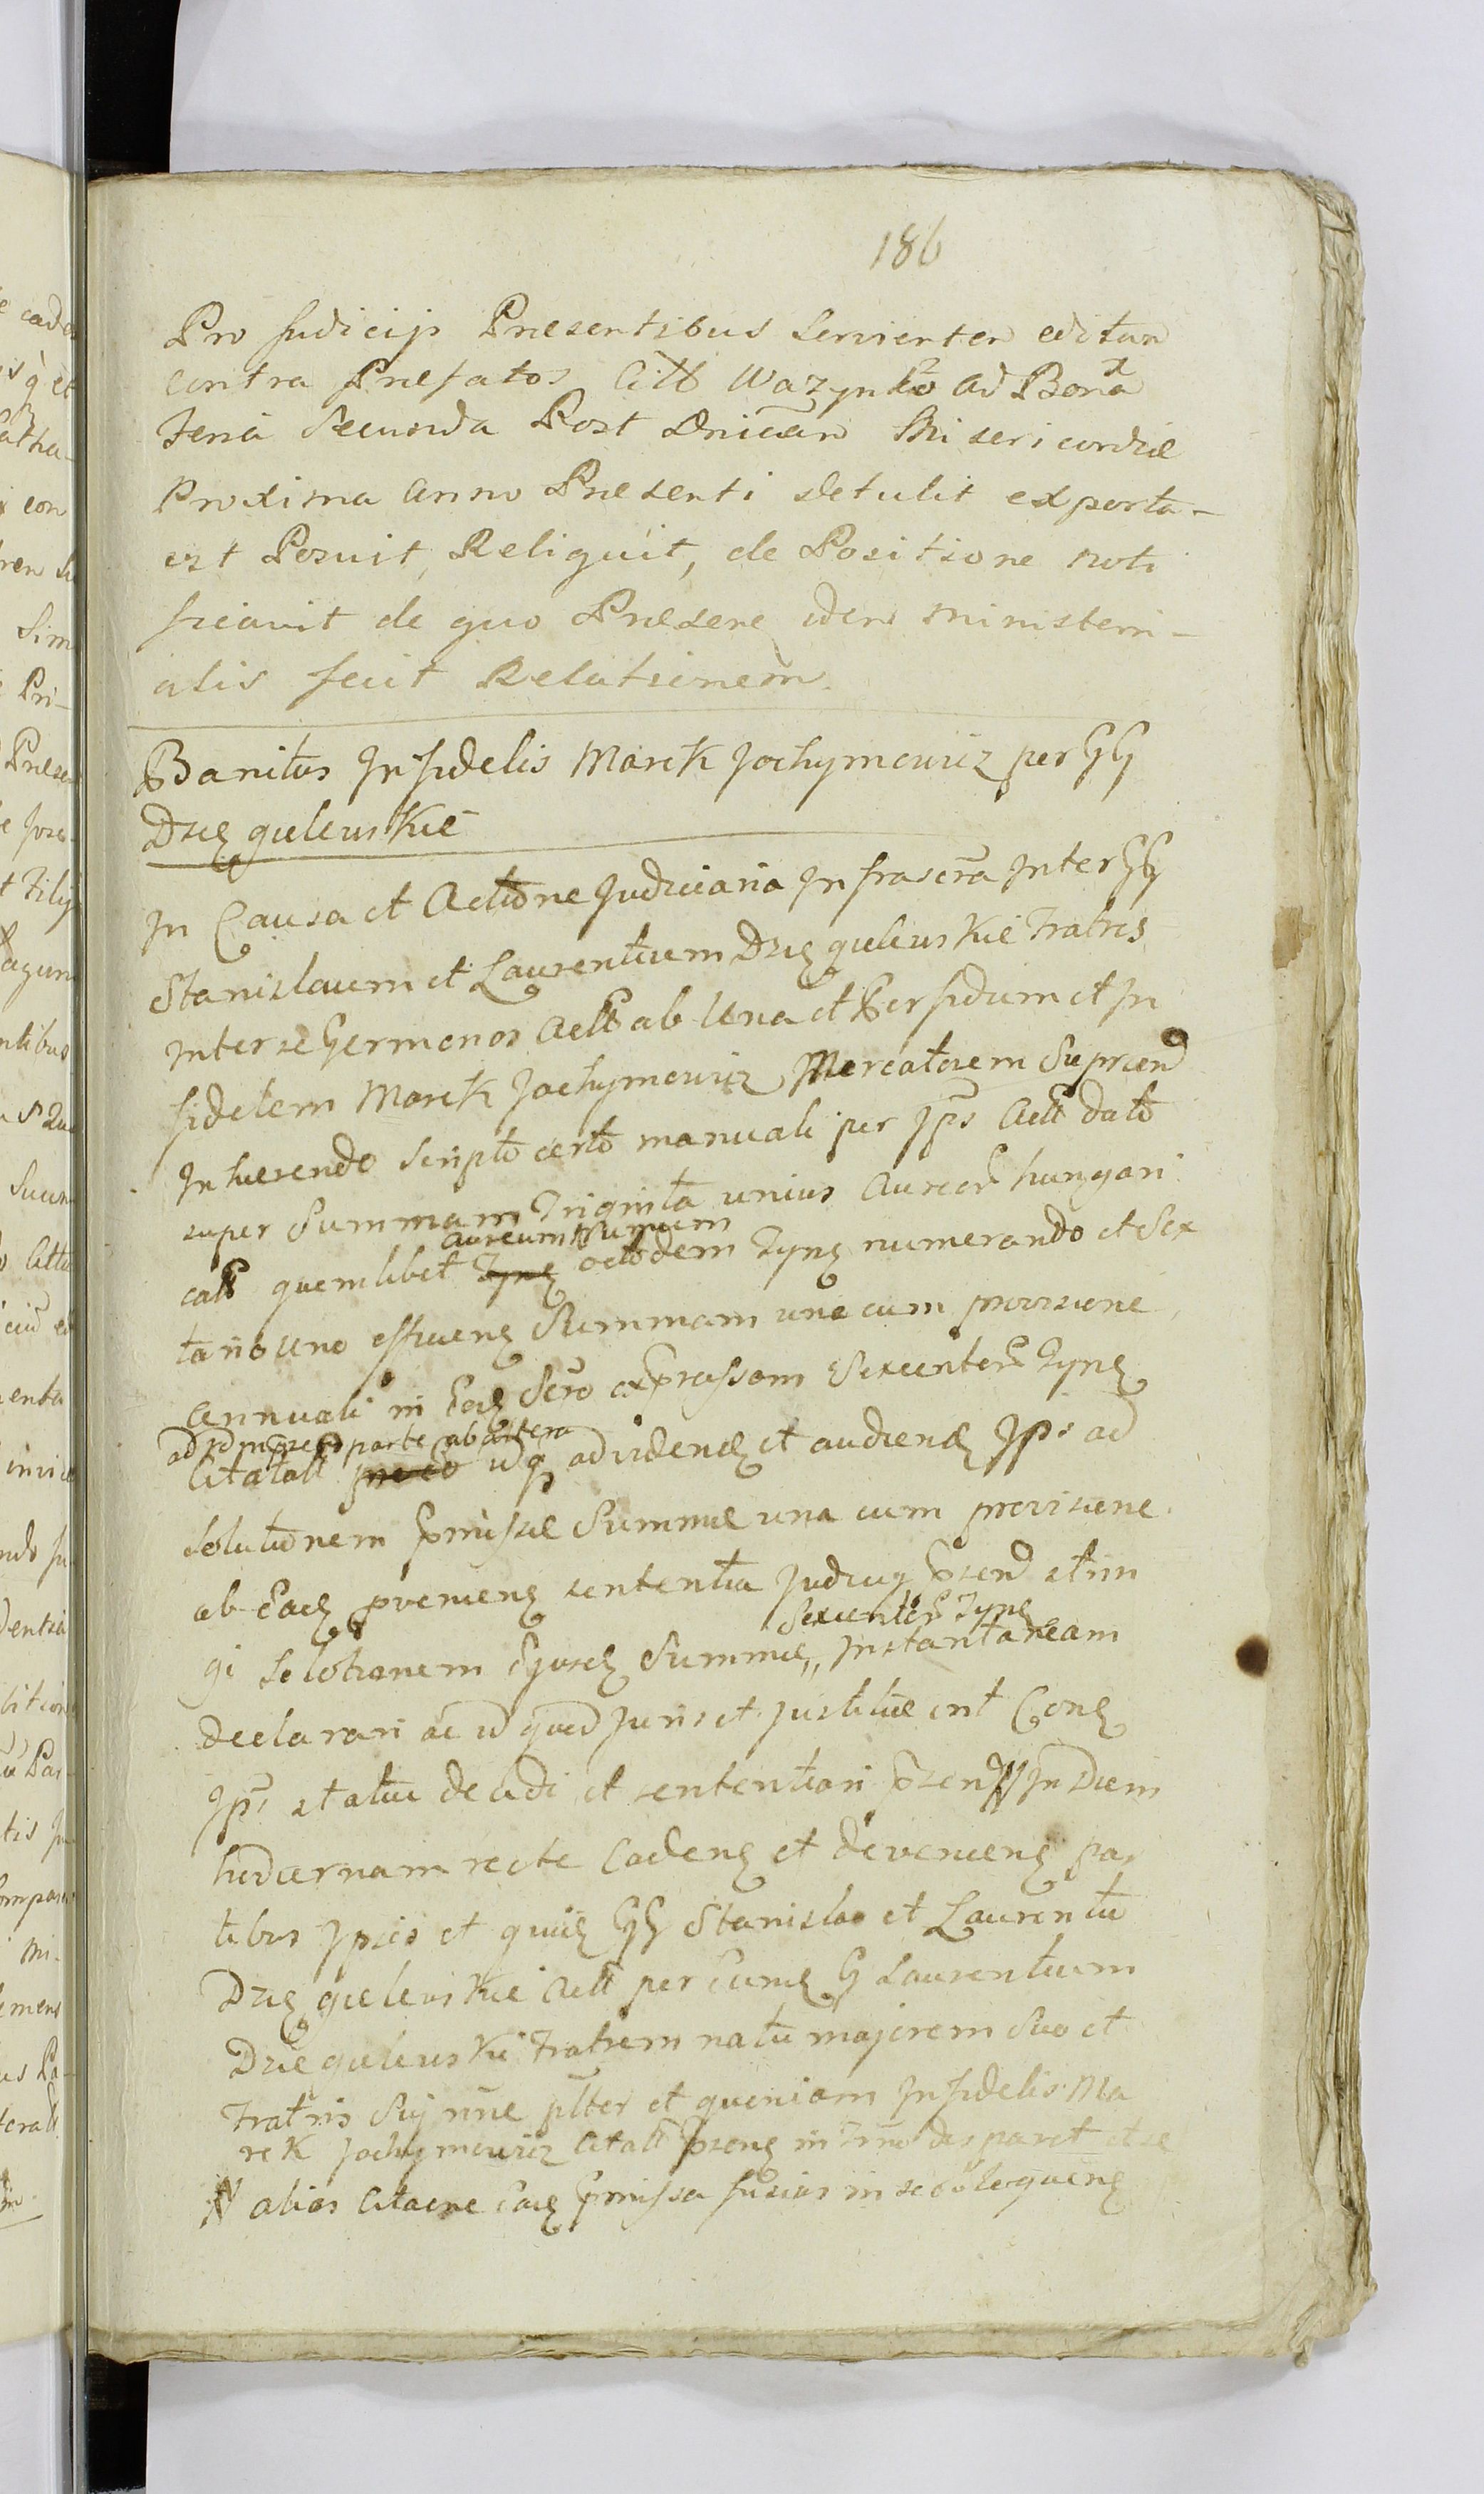 186
Pro Judicijs Praesentibus Servienten editan
contra Praefatos Citt Wazynko ad Bona
Feria Secunda Post Dnicam Misericordiae
Proxima anno Praesenti detulit exporta-
vit Posuit, Reliquit, de Positione noti
ficavit de quo Praesens idem ministeri-
alis fecit Relationem.
Banitus Infidelis Marek Jochymowicz per GG
Drzęgielewskie
In Causa et Actione Judiciaria Infrascra Inter GG
Stanislaum et Laurentium Drzęgielewskie Fratres
Inter se Germanos Actt ab Una et Perfidum et In
fidelem Marek Jochymowicz Mercatorem
Inhaerendo Scripto certo manuali per Ips Actt dato
super Summam Triginta unius Aureor hungari
aureum
catt quemlibet Tynf octodem Tynf numerando et Sex
tario uno efficien Summam una cum provisione
annuali in Ead Scro expressam Sexcenter Tynf
parte ab altera
Citatatt idq ad vidend et audiend Ips ad
Solutionem Pmissae Summae una cum provisione
ab Ead provenien sententia Judicij Psen strin
Sexcenter Tynf
gi Solutionem Ejusd Summae Instantaneam
declarari ac id quod Juris et Justitiae erit Cond
Ips statui decidi et sententiari Psen In Diem
hodiernam recte Caden et devenien par
tibus Ipsis et quid GG Stanislao et Laurentio
Drzęgielewskie Actt per Eund G Laurentium
Drzęgielewskie Fratrem natu majorem Suo et
Fratris Sui nne plter et quoniam Infidelis Ma
rek Jochymowicz Citatt Psens in Trno disparet et se
N alias Citaone Ead Pmissa fusius in se loquen